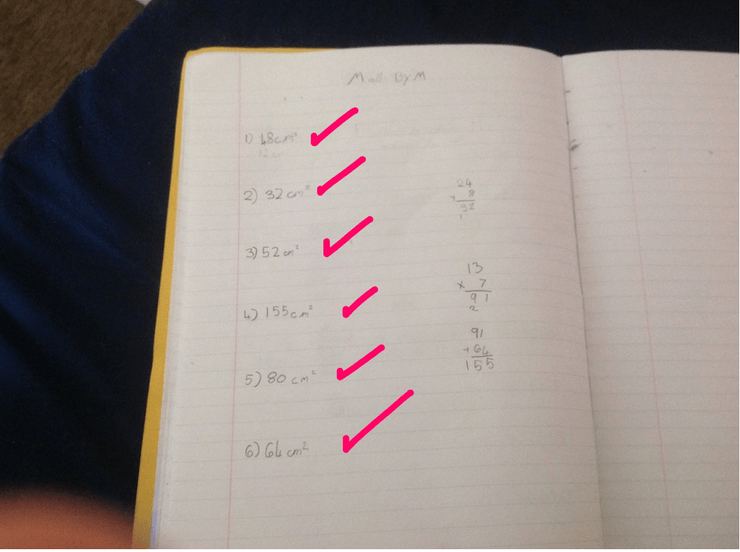 By M
1) 48cm²
2) 32 cm²
3) 52 cm²
4) 155cm²
5) 80 cm²
6) 64 cm²
24
+ 8
32
1
13
× 7
91
2
91
+64
155